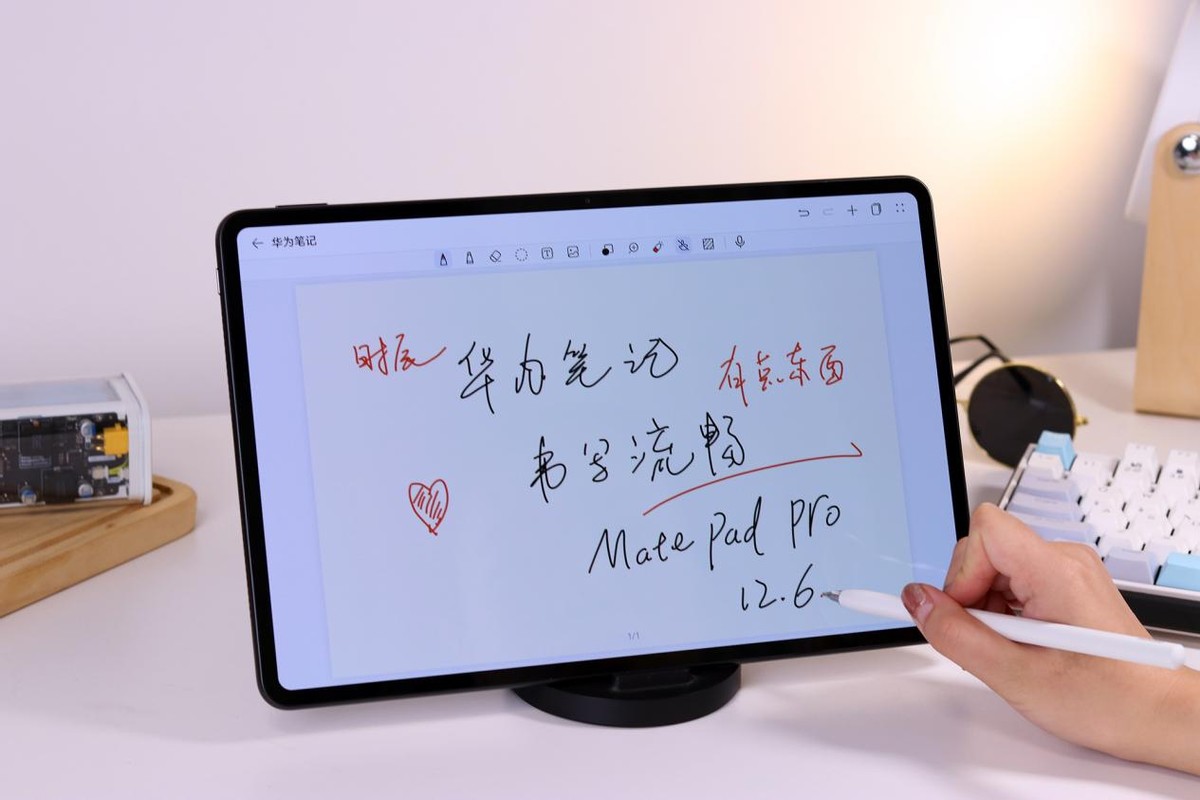 华为笔记
华为笔记 有点东西
书写流畅
MatePad Pro
12.6
1/1